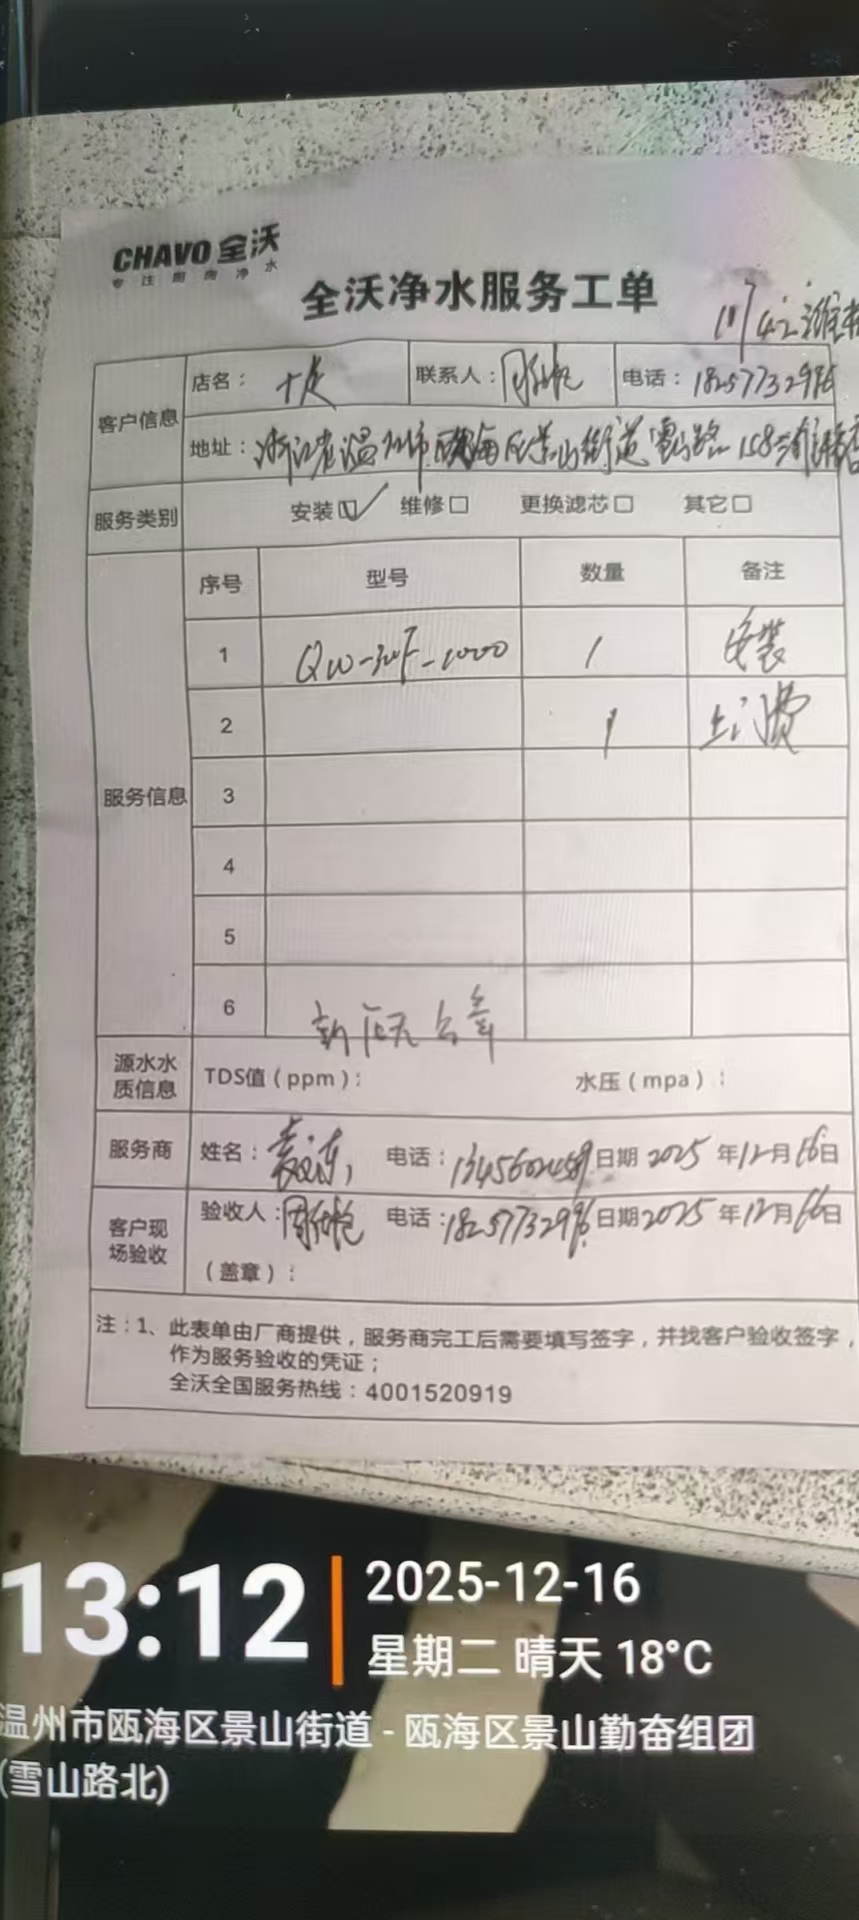 CHAVO 全沃
专注厨房净水
全沃净水服务工单
客户信息
店名：
联系人：
电话：18257732996
地址：浙江省温州市瓯海区景山街道雪山路158
服务类别
安装☑ 维修□ 更换滤芯□ 其它□
服务信息
序号 型号 数量 备注
1 1 安装
2 1 上门费
3
4
5
6
源水水质信息 TDS值（ppm）： 水压（mpa）：
服务商 姓名： 电话： 日期 2025 年12月16日
客户现场验收 验收人： 电话：18257732996 日期2025 年12月16日
（盖章）：
注：1、此表单由厂商提供，服务商完工后需要填写签字，并找客户验收签字，
作为服务验收的凭证；
全沃全国服务热线：4001520919
13:12
2025-12-16
星期二 晴天 18°C
温州市瓯海区景山街道 - 瓯海区景山勤奋组团
(雪山路北)